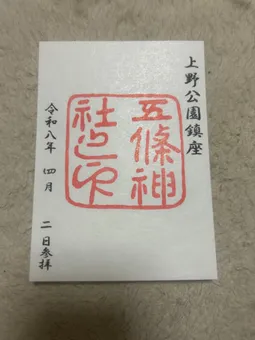 上野公園鎮座
五條神
社之印
令和八年 四月 二日参拝